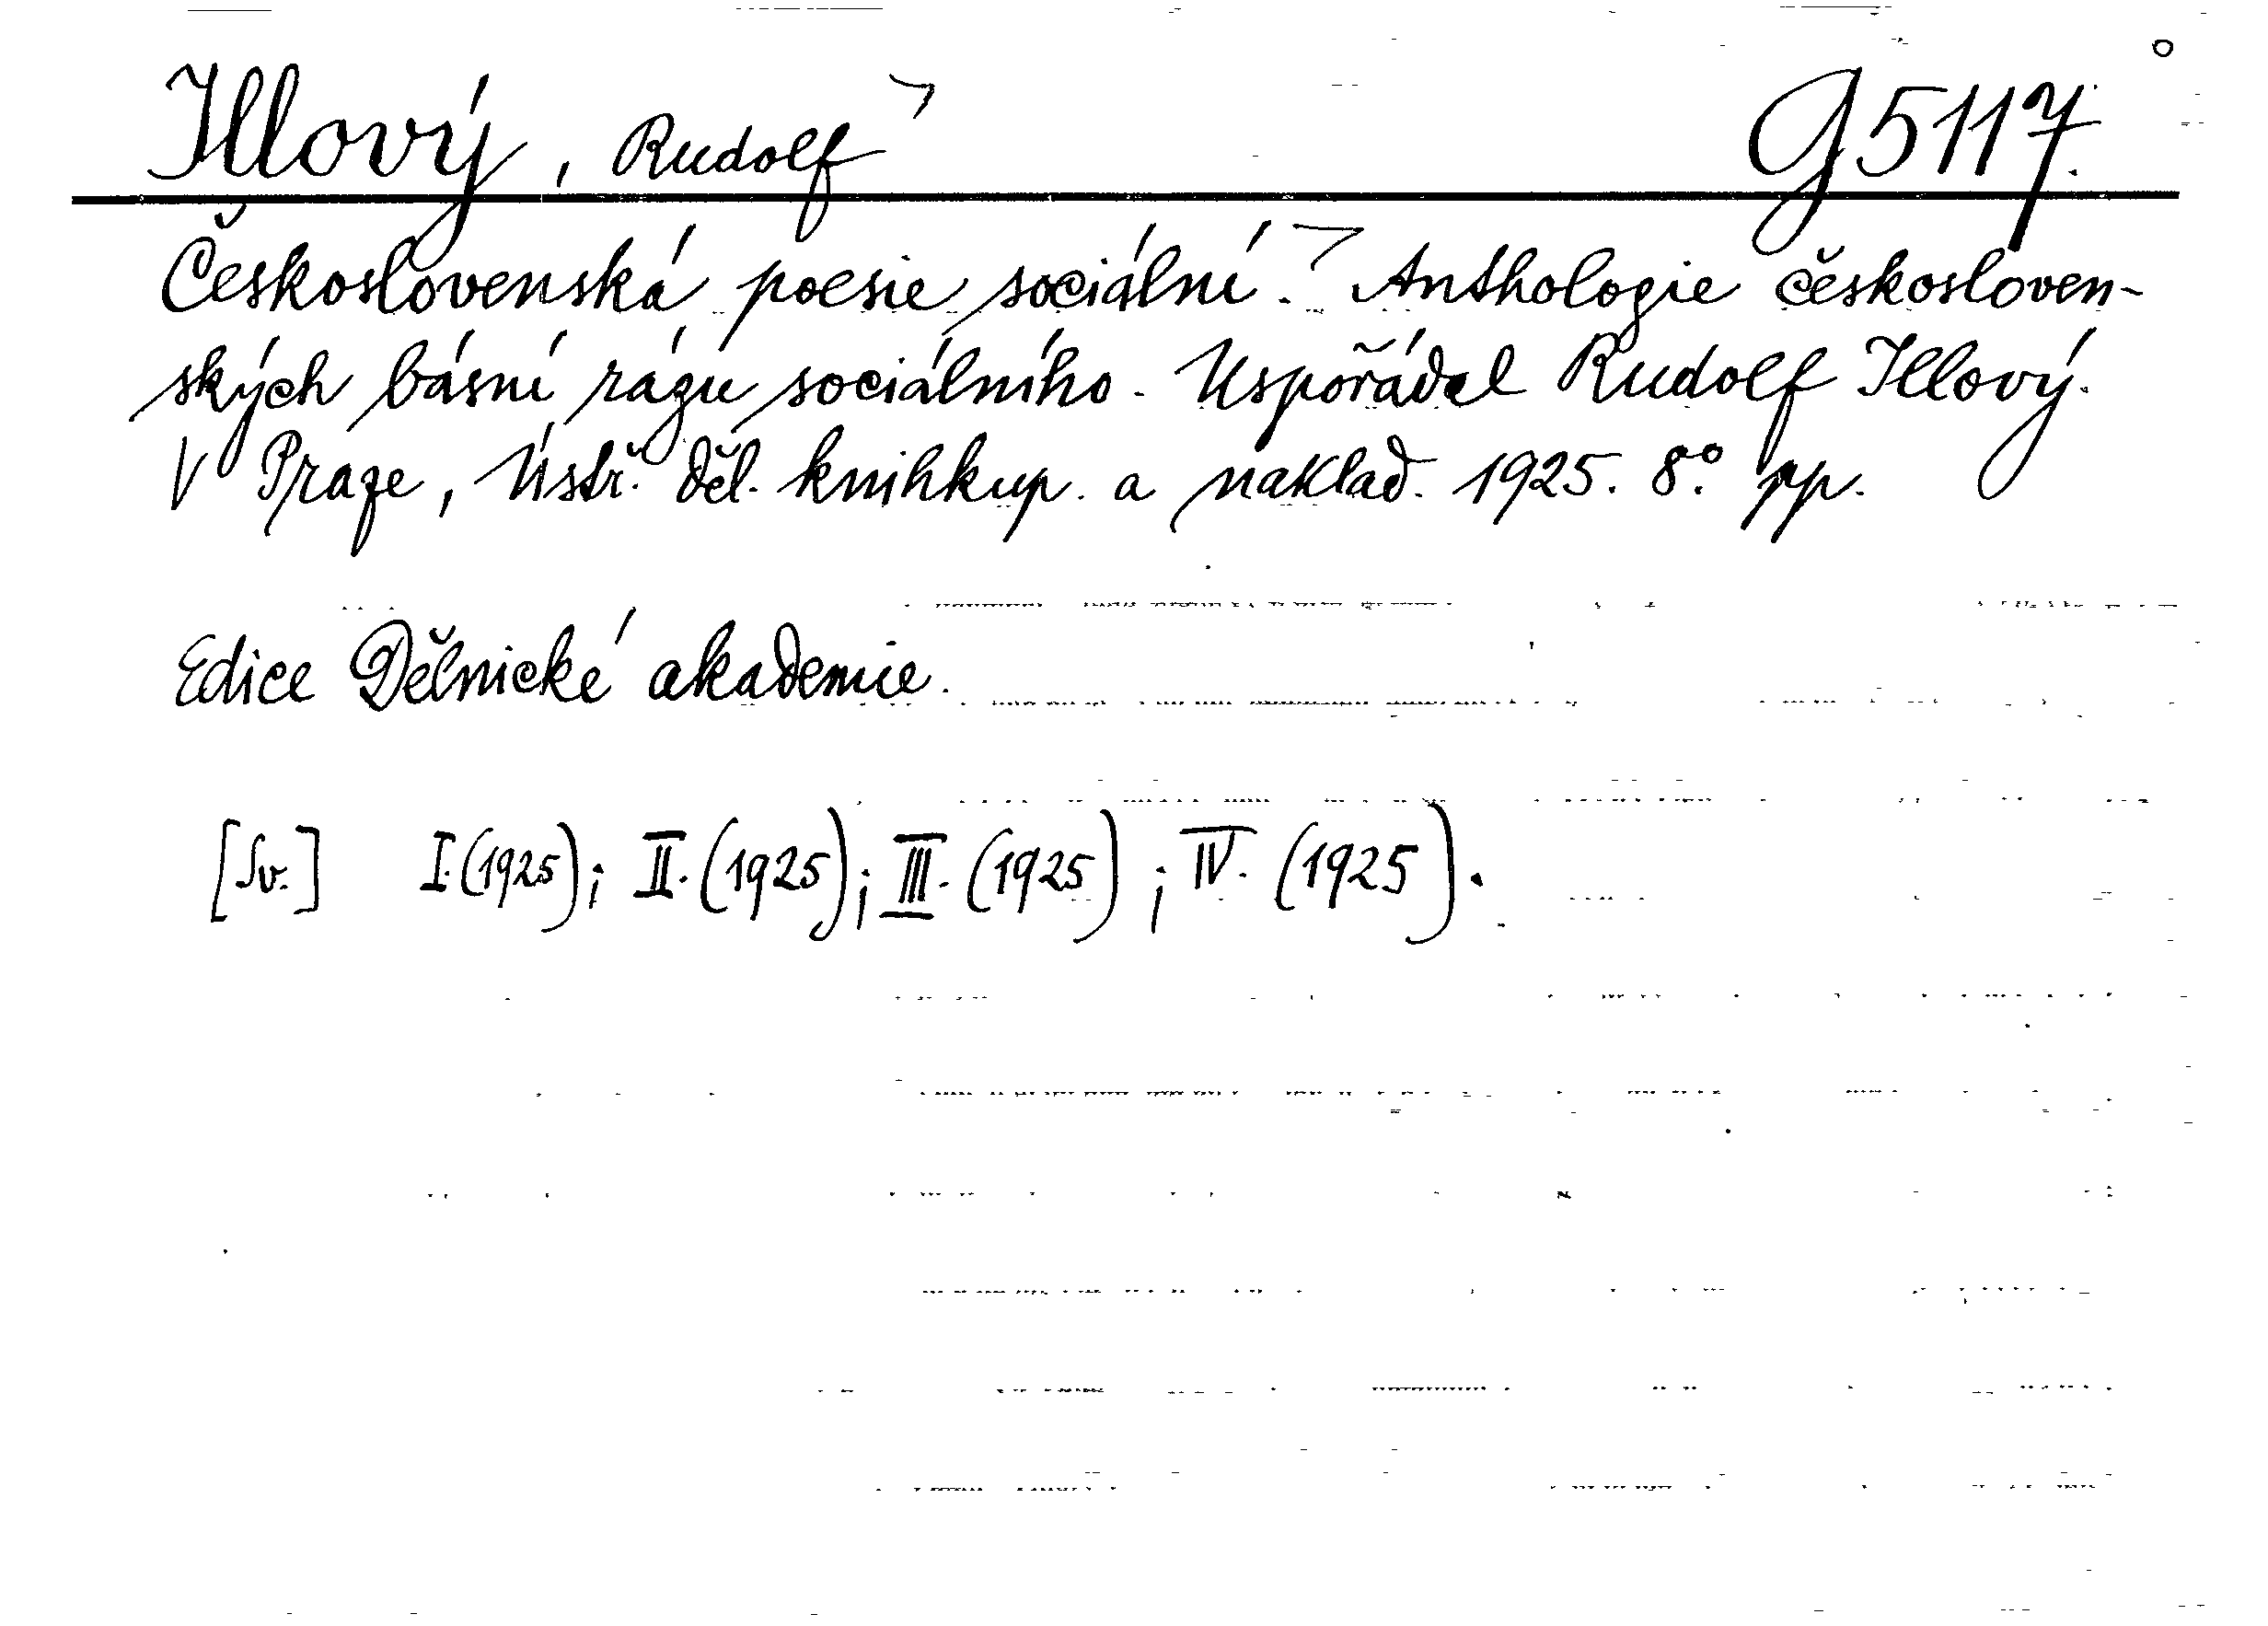 Illový, Rudolf G 5117.
Československá poesie sociální. Anthologie českosloven-
ských básní rázu sociálního. Uspořádal Rudolf Illový.
V Praze, Ústř. děl. knihkup. a naklad. 1925. 8°. pp.
Edice Dělnické akademie.
[Sv.] I. (1925); II. (1925); III. (1925); IV. (1925).